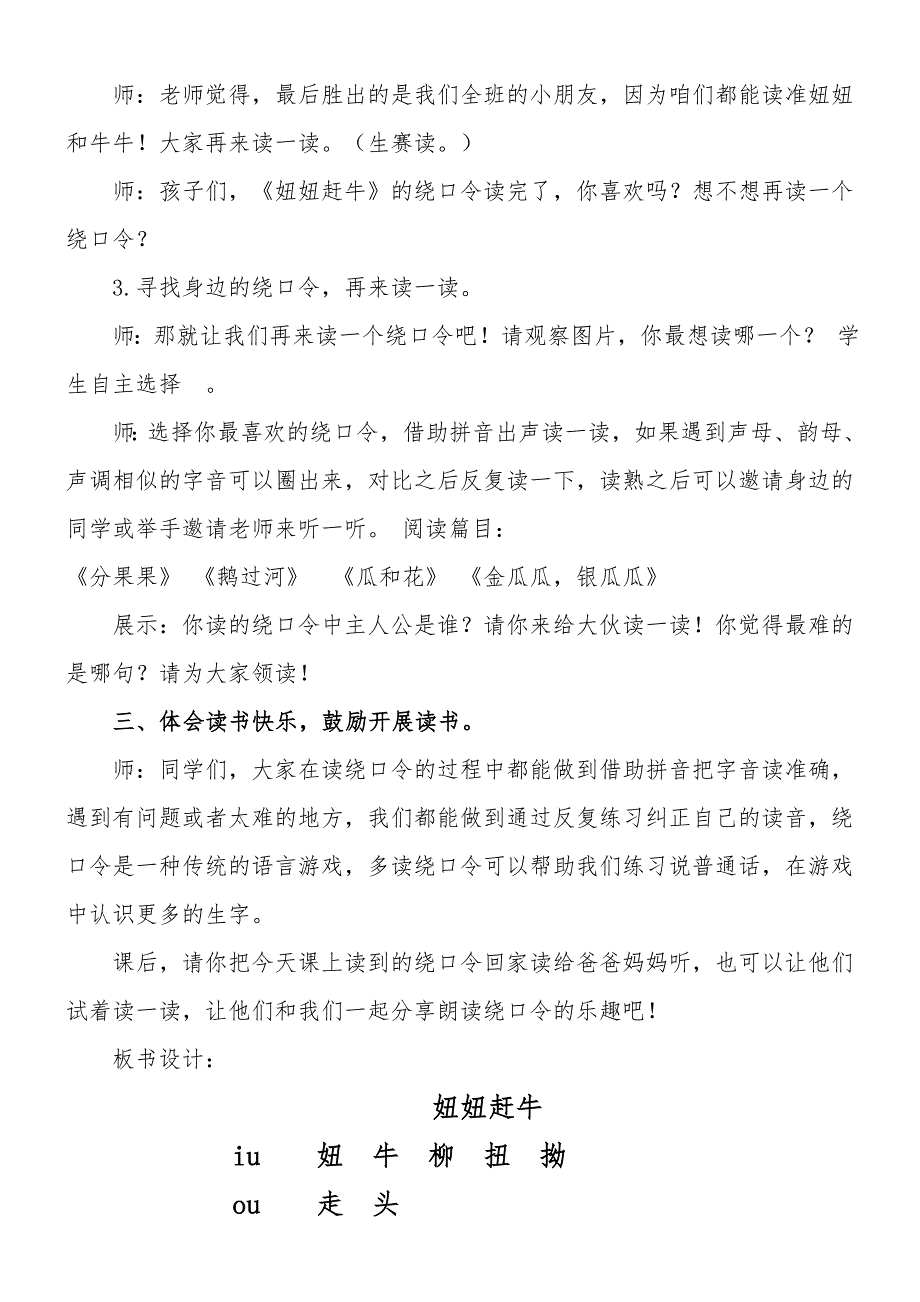 师：老师觉得，最后胜出的是我们全班的小朋友，因为咱们都能读准妞妞
和牛牛！大家再来读一读。（生赛读。）
师：孩子们，《妞妞赶牛》的绕口令读完了，你喜欢吗？想不想再读一个
绕口令？
3.寻找身边的绕口令，再来读一读。
师：那就让我们再来读一个绕口令吧！请观察图片，你最想读哪一个？ 学
生自主选择 。
师：选择你最喜欢的绕口令，借助拼音出声读一读，如果遇到声母、韵母、
声调相似的字音可以圈出来，对比之后反复读一下，读熟之后可以邀请身边的
同学或举手邀请老师来听一听。 阅读篇目：
《分果果》 《鹅过河》 《瓜和花》 《金瓜瓜，银瓜瓜》
展示：你读的绕口令中主人公是谁？请你来给大伙读一读！你觉得最难的
是哪句？请为大家领读！
三、体会读书快乐，鼓励开展读书。
师：同学们，大家在读绕口令的过程中都能做到借助拼音把字音读准确，
遇到有问题或者太难的地方，我们都能做到通过反复练习纠正自己的读音，绕
口令是一种传统的语言游戏，多读绕口令可以帮助我们练习说普通话，在游戏
中认识更多的生字。
课后，请你把今天课上读到的绕口令回家读给爸爸妈妈听，也可以让他们
试着读一读，让他们和我们一起分享朗读绕口令的乐趣吧！
板书设计：
妞妞赶牛
iu 妞 牛 柳 扭 拗
ou 走 头